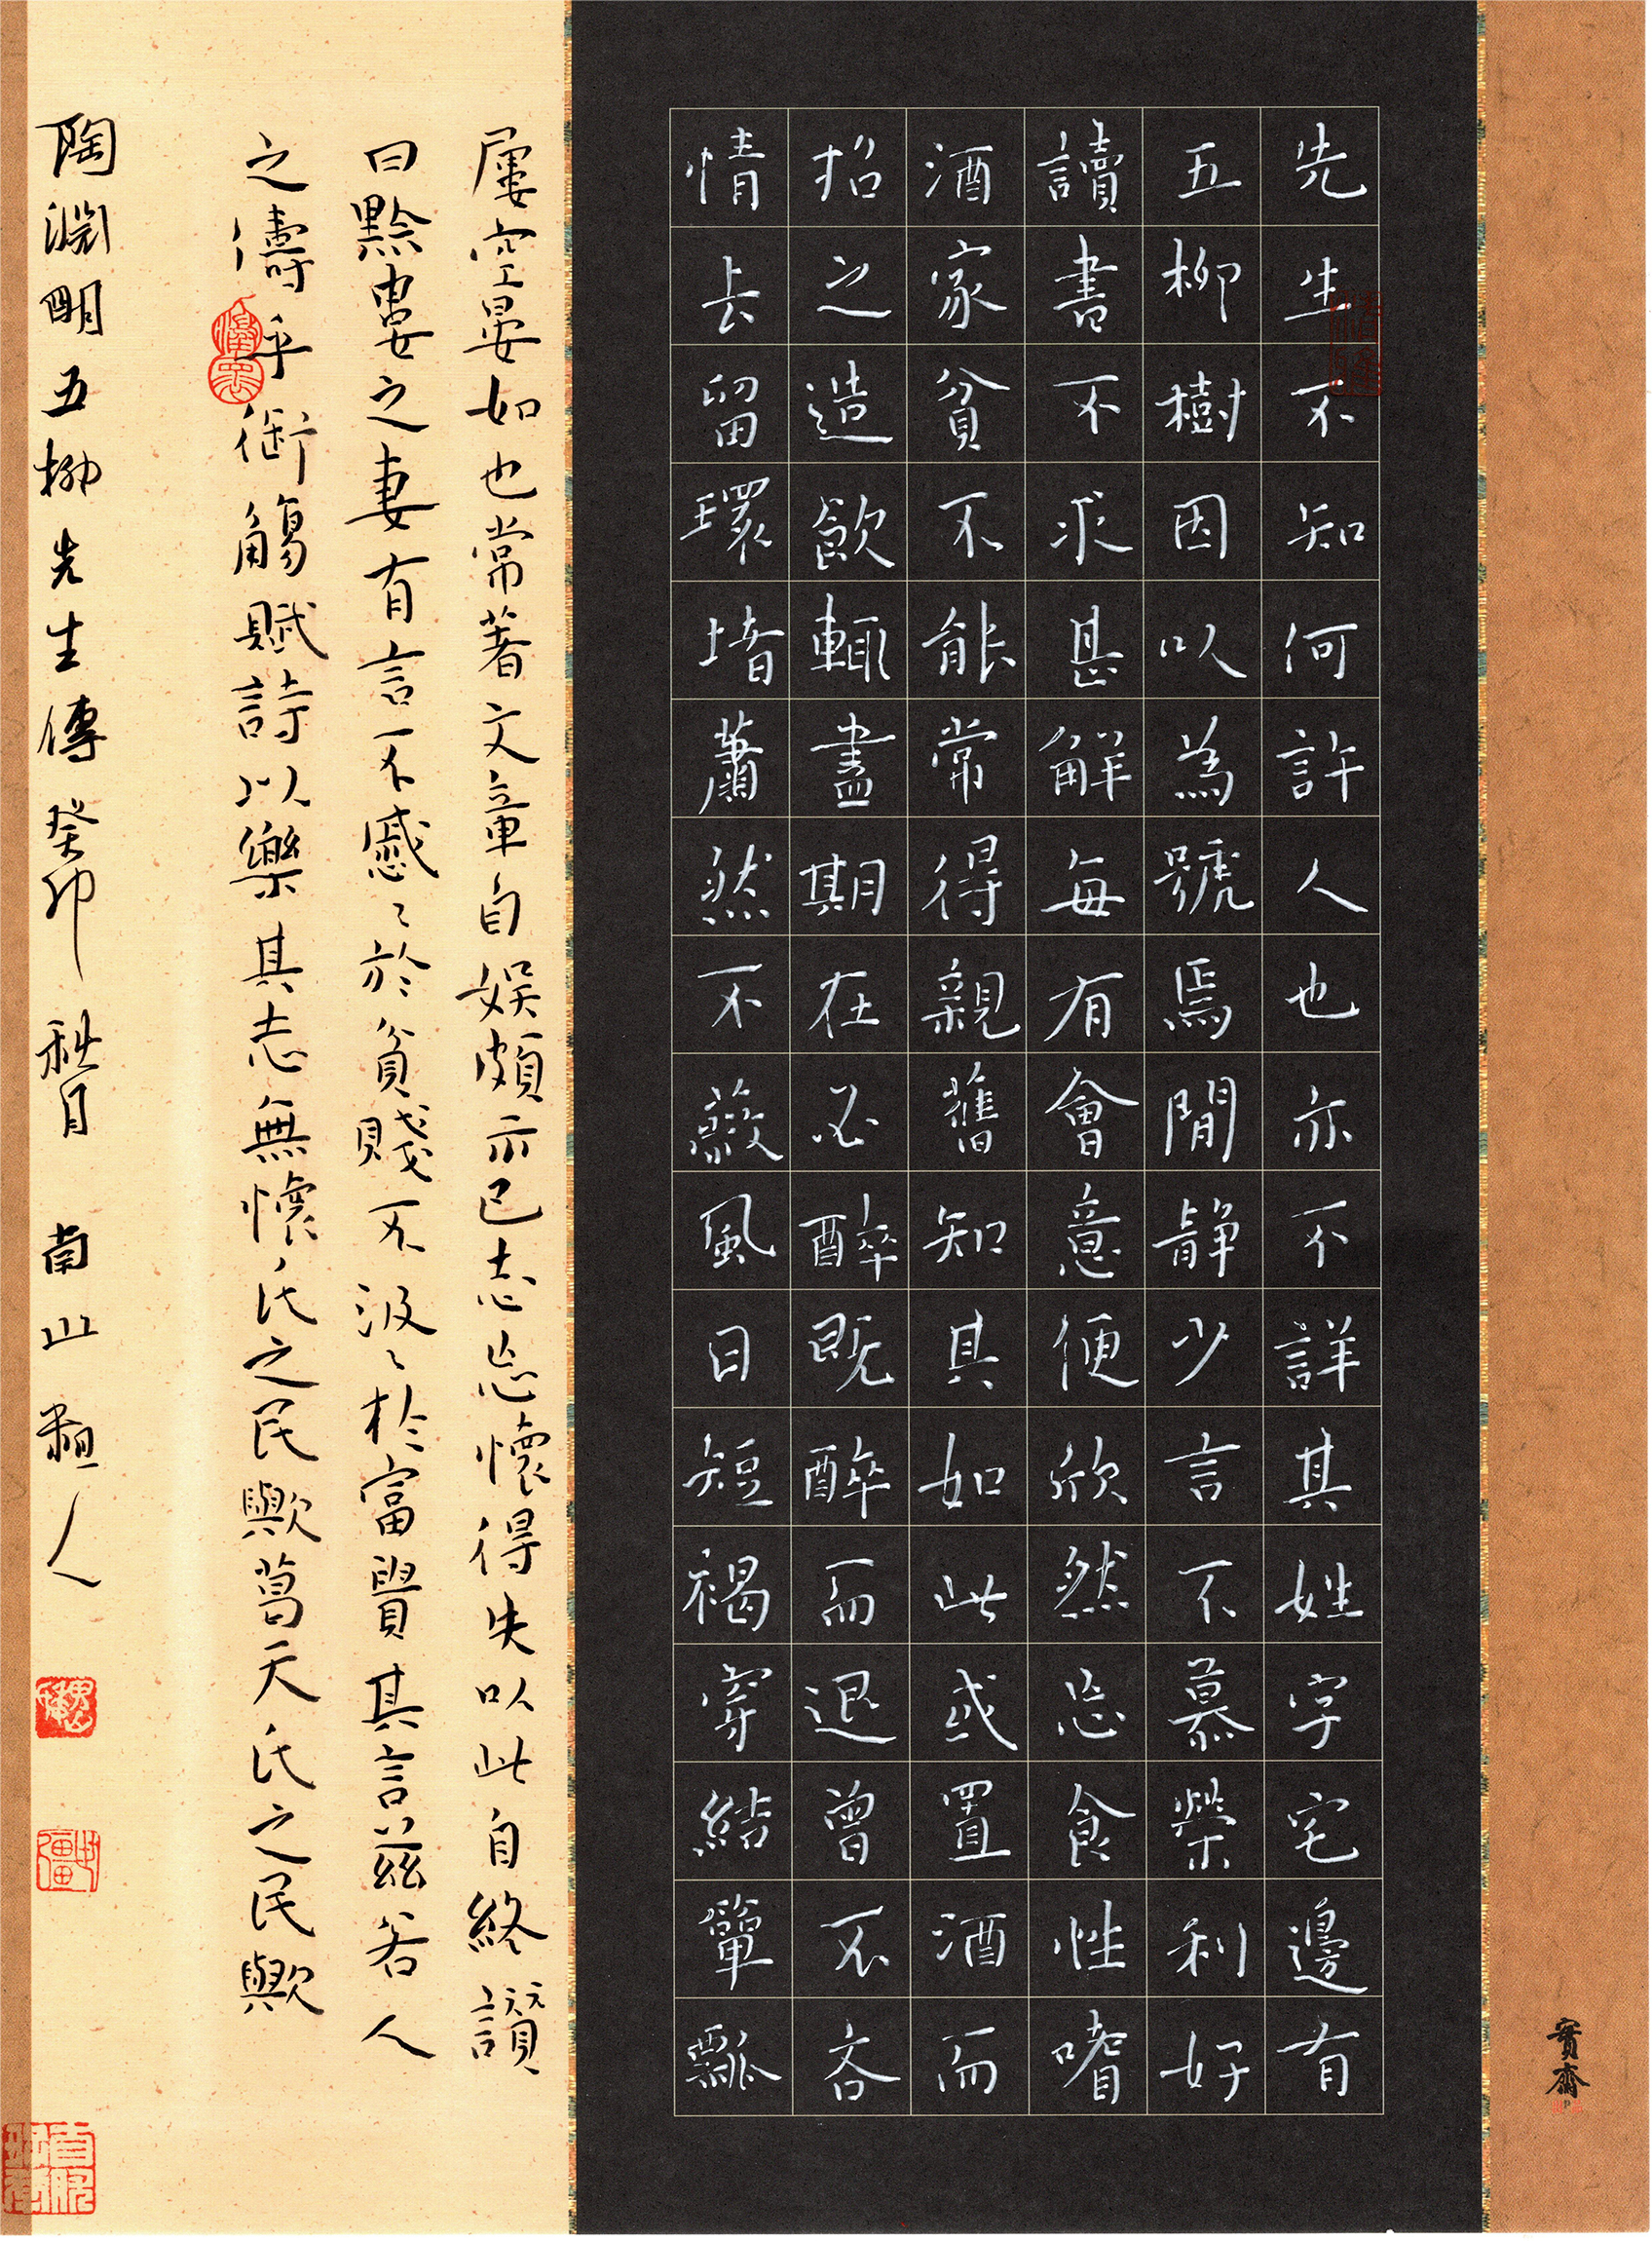 實齋
先生不知何許人也亦不詳其姓字宅邊有
五柳樹因以為號焉閒靜少言不慕榮利好
讀書不求甚解每有會意便欣然忘食性嗜
酒家貧不能常得親舊知其如此或置酒而
招之造飲輒盡期在必醉既醉而退曾不吝
情去留環堵蕭然不蔽風日短褐穿結簞瓢
屢空晏如也常著文章自娛頗示己志忘懷得失以此自終讚
曰黔婁之妻有言不慼〻於貧賤不汲〻於富貴其言茲若人
之儔乎銜觴賦詩以樂其志無懷氏之民歟葛天氏之民歟
陶淵明五柳先生傳 癸卯秋月 南山人